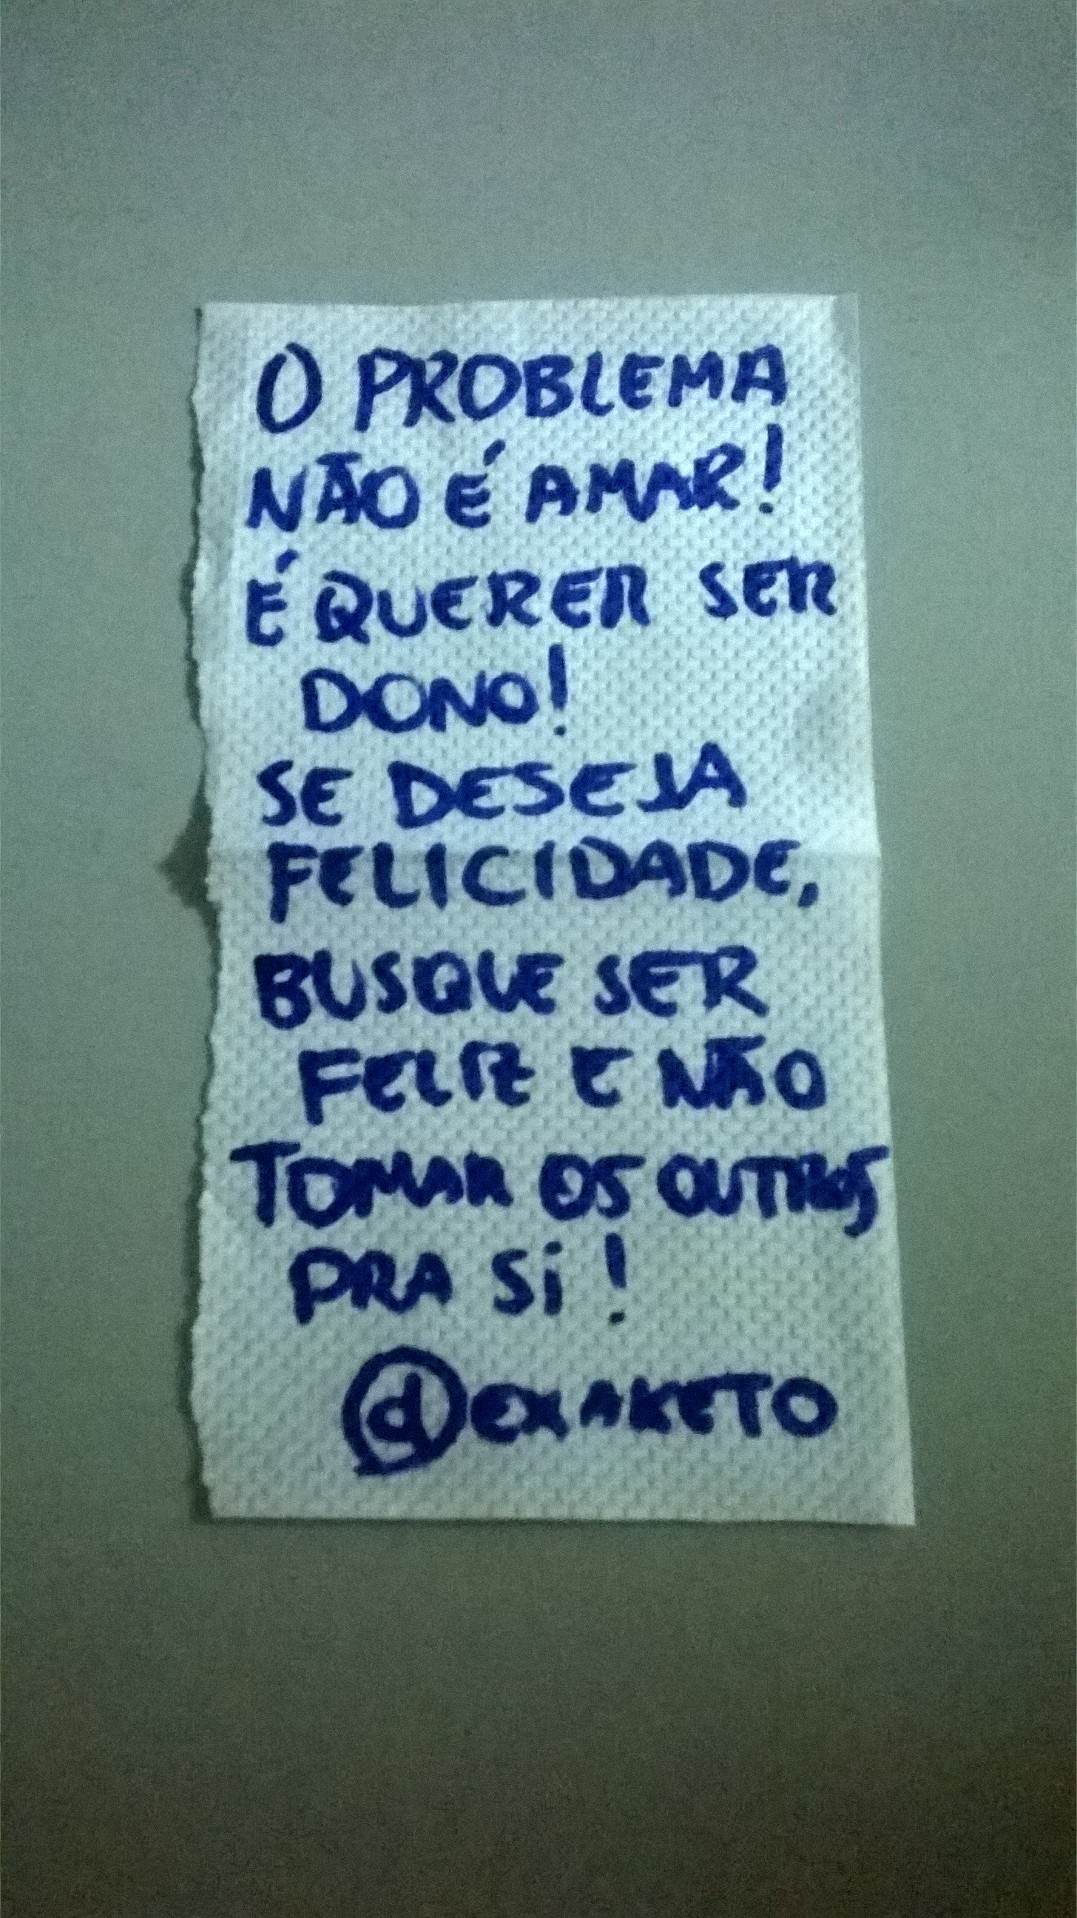 O PROBLEMA
NÃO É AMAR!
É QUERER SER
DONO!
SE DESEJA
FELICIDADE,
BUSQUE SER
FELIZ E NÃO
TOMAR OS OUTROS
PRA Si!
@EXAKETO